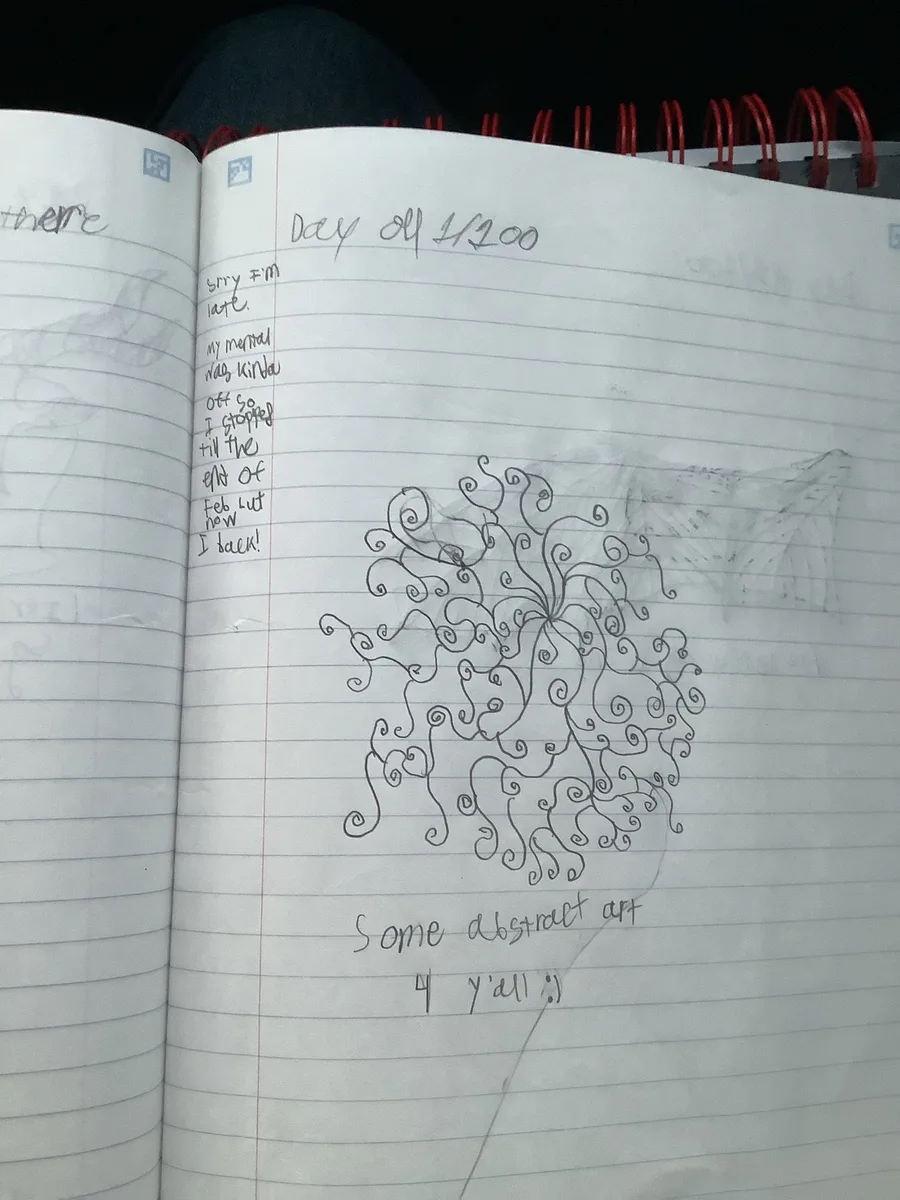 theme
Day off 1/100
srry I'm
late.
My mental
was kinda
off so
I stopped
till the
end of
Feb but
now
I back!
Some abstract art
4 y'all :)